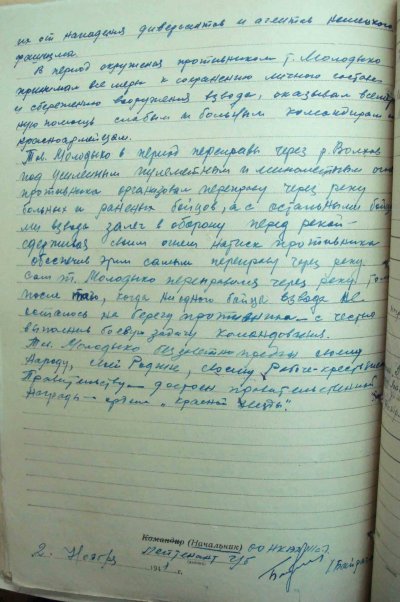 их от нападения диверсантов и агентов немецкого
фашизма.
В период окружения противником т. Молодько
принимал все меры к сохранению личного состава
и сбережению вооружения взвода, оказывал всемер
ную помощь слабым и больным командирам и
красноармейцам.
Тов. Молодько в период переправы через р. Волхов
под усиленным пулеметным и минометным огнем
противника организовал переправу через реку
больных и раненых бойцов, а с остальными бойца
ми взвода залег в оборону перед рекой-
сдерживая своим огнем натиск противника
обеспечив этим самым переправу через реку
сам т. Молодько переправился через реку
после того, когда ни одного бойца взвода не
осталось на берегу противника - с честью
выполнив боевую задачу командования.
Тов. Молодько беззаветно предан своему
народу, своей Родине, своему Рабоче-крестьянск
Правительству - достоин правительственной
награды - орден "Красной звезды".
Командир (Начальник) ОО НКВД
Лейтенант г/б
2. Ноября 1941 г.